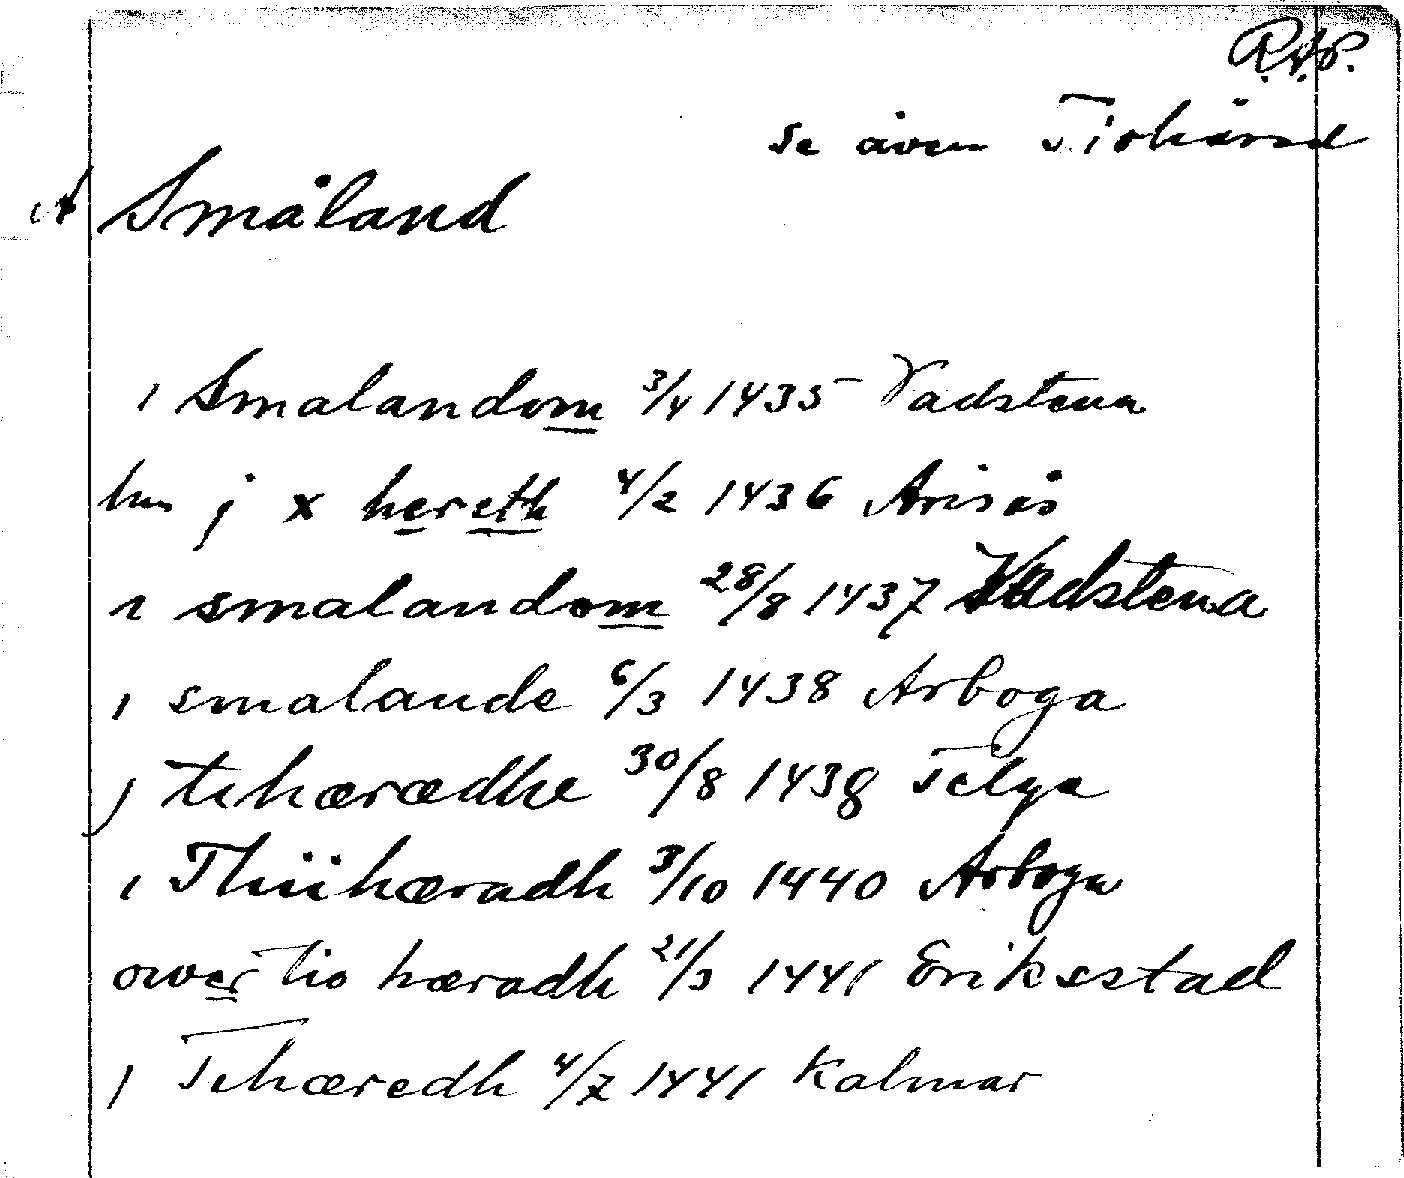 R.A.P.
se även Tiohärad
A Småland
i Smalandom 3/4 1435 Vadstena
hus j x hereth 4/2 1436 Arisås
i smalandom 28/8 1437 Vadstena
i smalande 6/3 1438 Arboga
j tihærædhe 30/8 1438 Telge
i Thiihæradh 3/10 1440 Arboga
ower Tio hæradh 21/3 1441 Eriksstad
j Tihæredh 4/7 1441 Kalmar